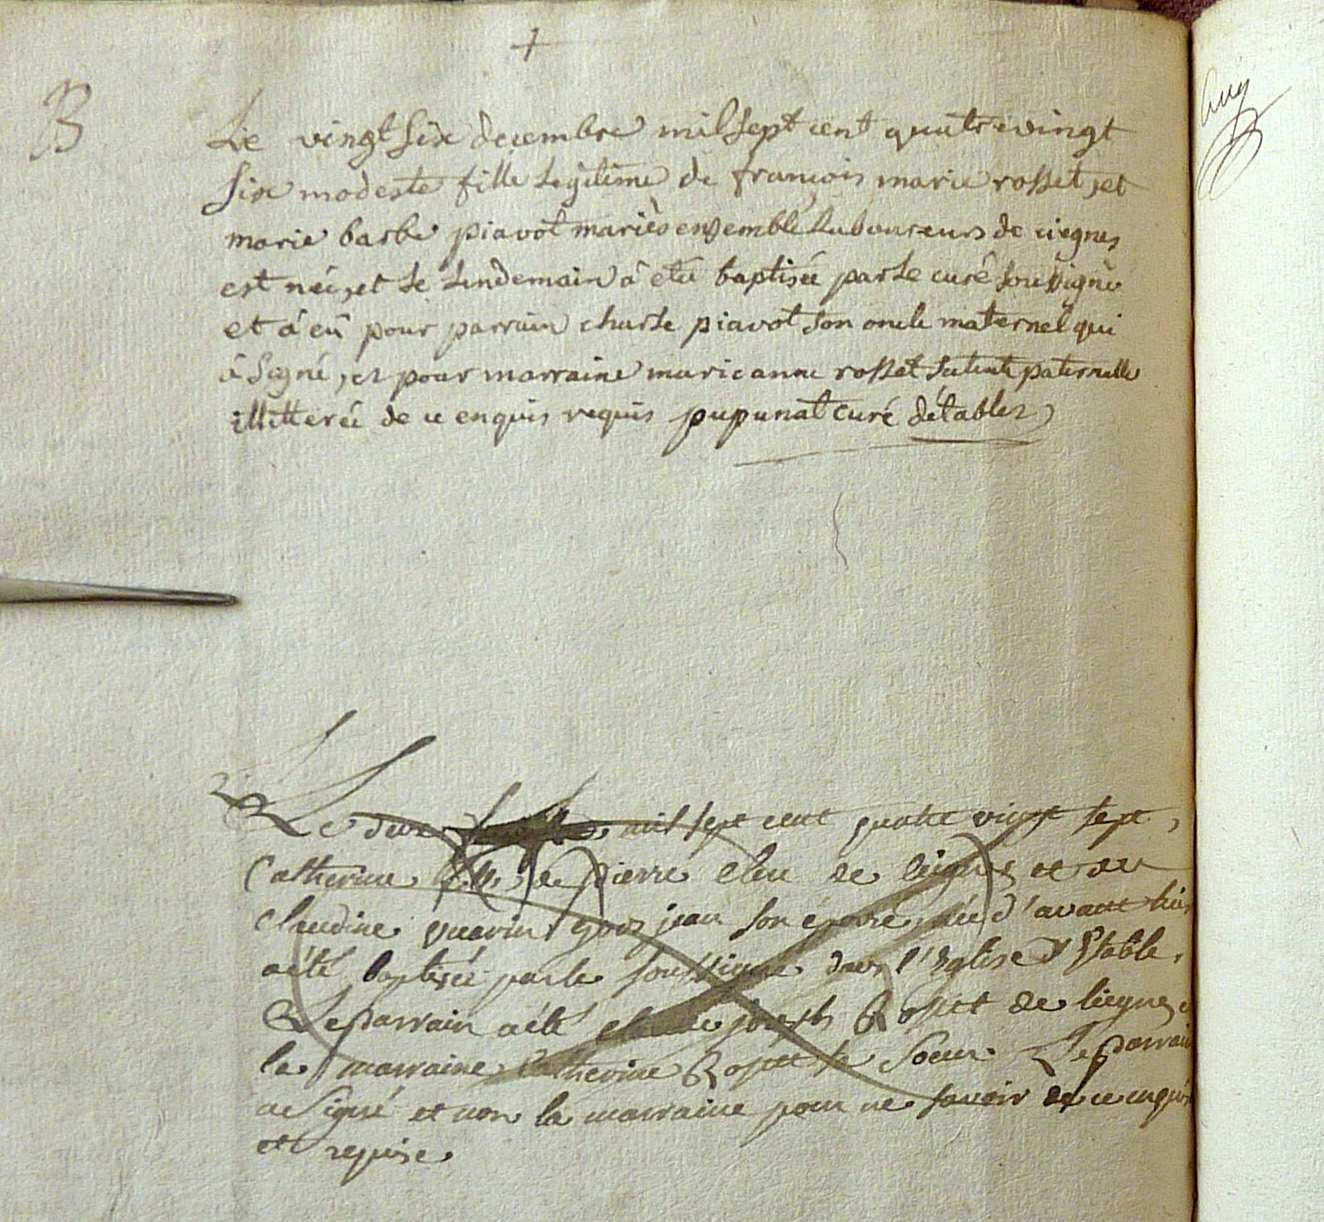 +
B
Le vingt six decembre mil sept cent quatre vingt
six modeste fille legitime de françois marie rosset, et
marie barbe piavot mariès ensemble laboureurs de ciegnes
est née, et le lendemain à eté baptisée par le curé soussigné
et à eû pour parrain charle piavot son oncle maternel qui
à signé, et pour marraine marie anne rosset sa tente paternelle
illitterée de ce enquis requis pupunat curé détables
Le deux mil sept cent quatre vingt sept,
Catherine fille de pierre de et de
claudine son épouse, née d'avant hier
a été baptisée par le soussigné dans l'Eglise d'Etable,
Le parrain a été claude joseph Rosset de ciegnes
la marraine Catherine Rosset sa soeur. Le parrain
a signé et non la marraine pour ne savoir de ce enquise
et requise.